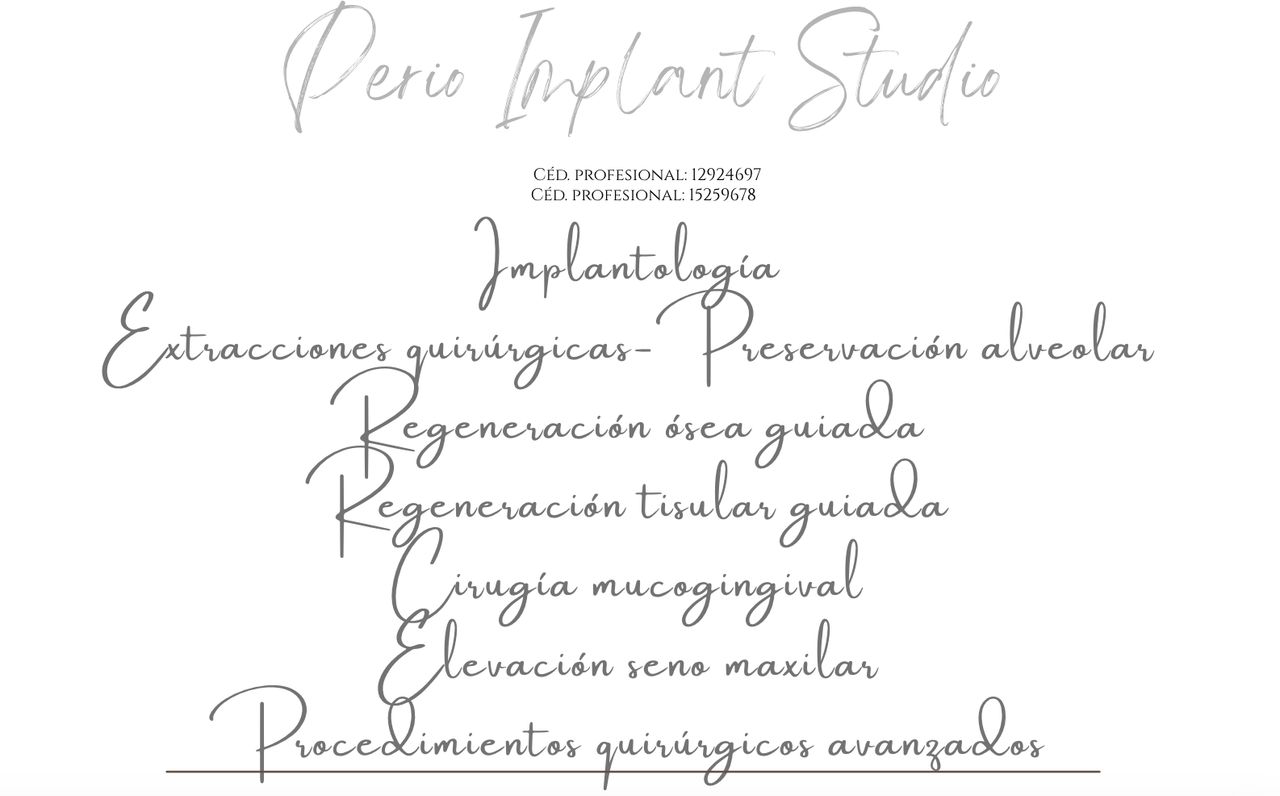 Perio Implant Studio
Céd. profesional: 12924697
Céd. profesional: 15259678
Implantología
Extracciones quirúrgicas- Preservación alveolar
Regeneración ósea guiada
Regeneración tisular guiada
Cirugía mucogingival
Elevación seno maxilar
Procedimientos quirúrgicos avanzados